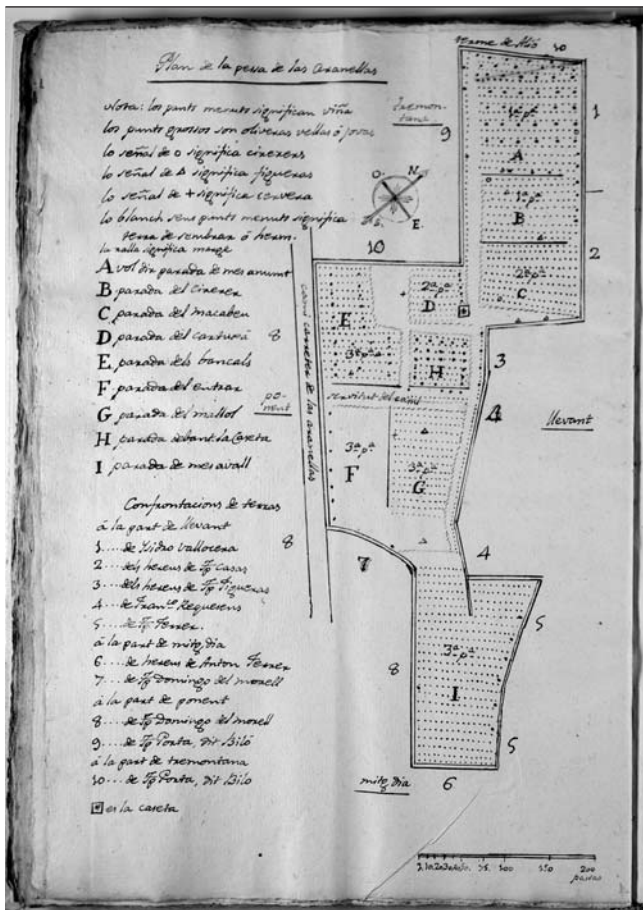 Plan de la pessa de las Aranellas
Nota: los punts menuts significan viña
los punts grossos son oliveras vellas ó jovas
lo señal de o significa cirerers
lo señal de Δ significa figueras
lo señal de + significa cervera
lo blanch sens punts menuts significa
terra de sembrar ó herm.
la ralla significa marge
A vol dir parada de mes amunt
B parada del cirerer
C parada del macabeu
D parada del cartuxá
E parada dels bancals
F parada del entrar
G parada del mallol
H parada devant la Caseta
I parada de mes avall
Confrontacions de terras
á la part de llevant
1.... de Isidro Vallocera
2.... dels hereus de Jp Casas
3.... dels hereus de Jp Figueras
4.... de Fran.co Requesens
5.... de Jp Ferrer.
á la part de mitg dia
6.... de hereus de Anton Ferrer
7.... de Jp Domingo del morell
á la part de ponent
8.... de Jp Domingo del morell
9.... de Jp Porta, dit Biló
á la part de tremontana
10.... de Jp Porta, dit Biló
es la caseta
terme de
10
tremontana
9
1
1ª pª
A
O. N.
S. E.
1ª pª
B
2
10
2ª pª
C
2ª pª
D
E
8
3ª pª
H
3
camí carreter de las aranellas
servitut del camí
4
ponent
llevant
3ª pª
F
3ª pª
G
8
7
4
5
3ª pª
8
I
5
6
mitg dia
75 100 150 200
passas